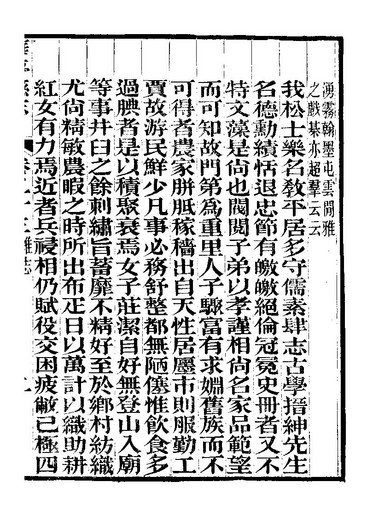 湧霧翰墨屯雲閒雅
之戲棊亦超羣云云
我松士樂名敎平居多守儒素肆志古學搢紳先生
名德勳績恬退忠節有皦皦絕倫冠冕史冊者又不
特文藻是尚也閥閱子弟以孝謹相尚名家品範望
而可知故門第為重里人子驟富有求婣舊族而不
可得者農家胼胝稼穡出自天性居廛市則服勤工
賈故游民鮮少凡事必務舒整都無陋僿惟飲食多
過腆者是以積聚衰焉女子莊潔自好無登山入廟
等事井臼之餘刺繡旨蓄靡不精好至於鄉村紡織
尤尚精敏農暇之時所出布疋日以萬計以織助耕
紅女有力焉近者兵祲相仍賦役交困疲敝已極四
雜志